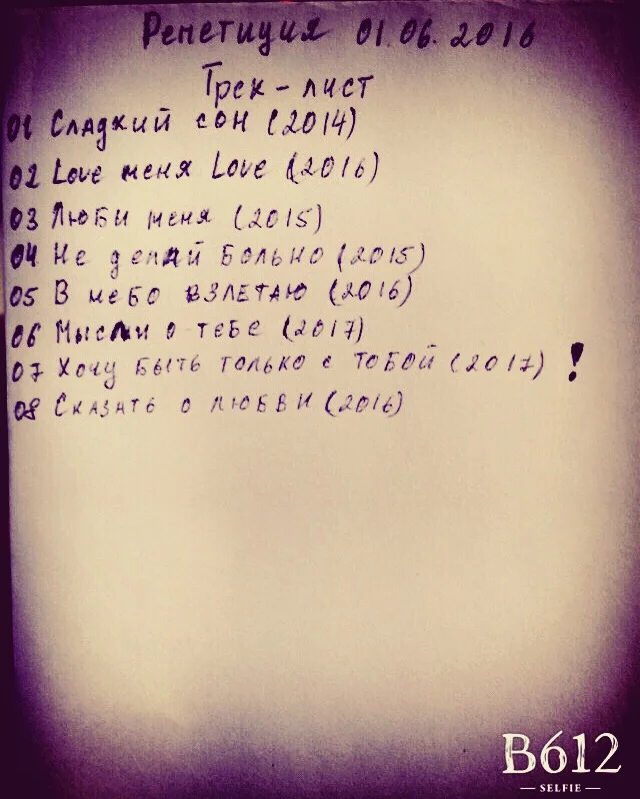 Репетиция 01.06.2016
Трек-лист
01 Сладкий сон (2014)
02 Love меня Love (2016)
03 Люби меня (2015)
04 Не делай больно (2015)
05 В небо взлетаю (2016)
06 Мысли о тебе (2017)
07 Хочу быть только с тобой (2017) !
08 Сказать о любви (2016)
B612
SELFIE